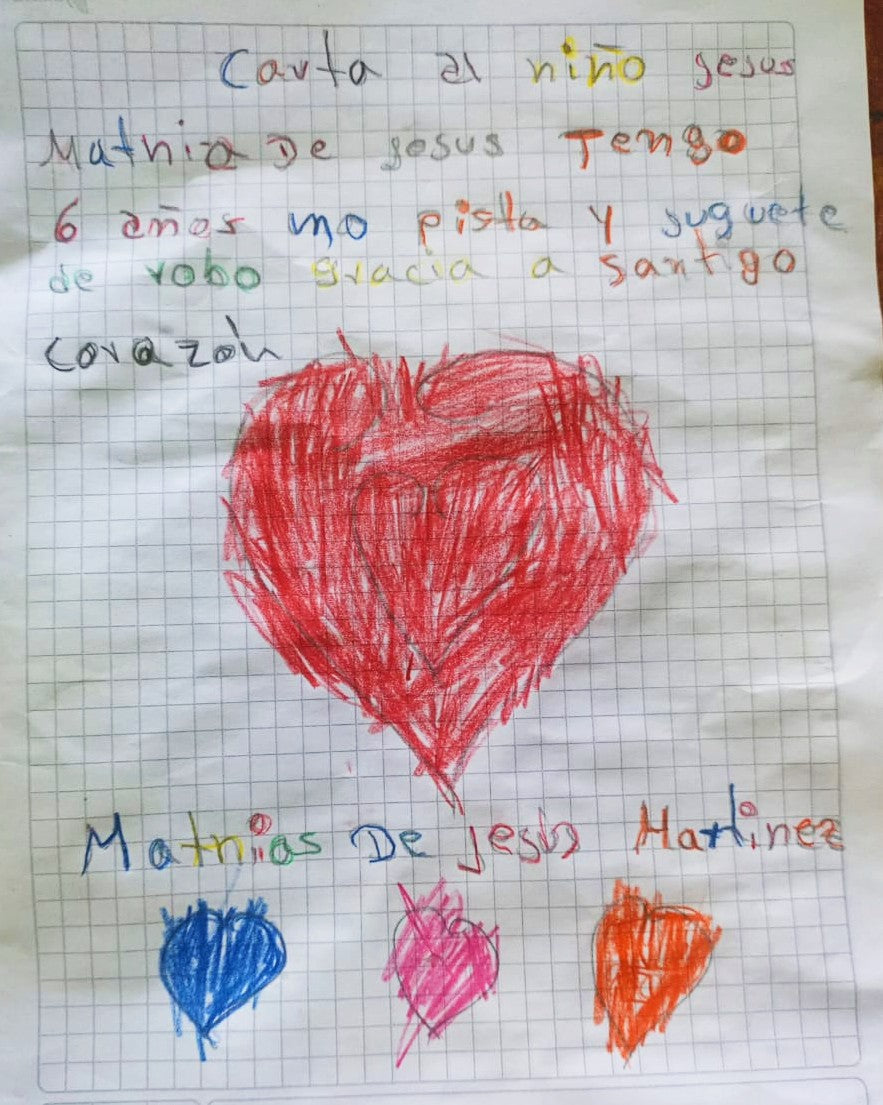 Carta al niño jesus
Mathia De jesus Tengo
6 años mo pista y juguete
de robo gracia a santigo
corazón
Mathias De Jesús Martinez